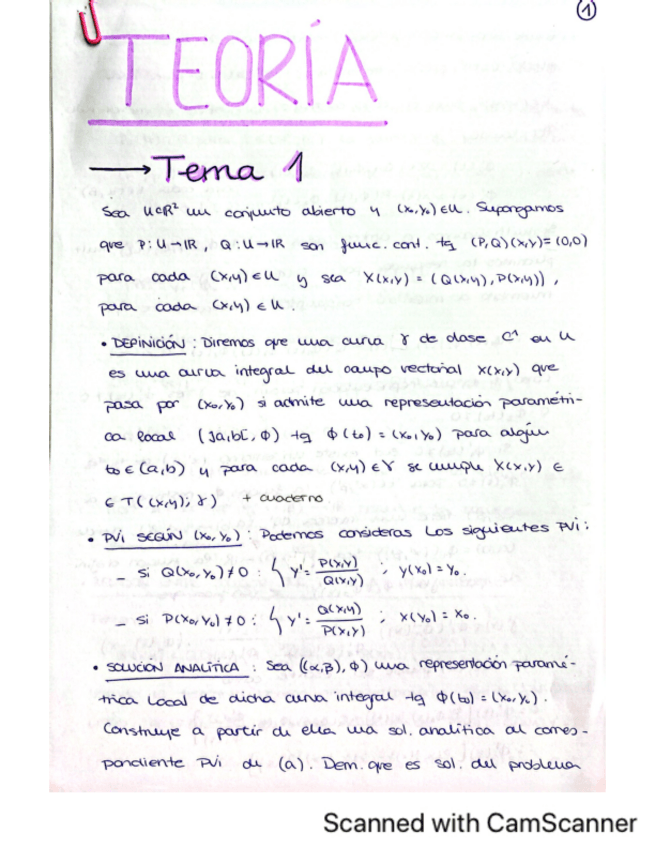 1
TEORÍA
→ Tema 1
Sea U⊂ℝ² un conjunto abierto y (x₀,y₀)∈U. Supongamos
que P:U→ℝ, Q:U→ℝ son func. cont. tq (P,Q)(x,y)=(0,0)
para cada (x,y)∈U y sea X(x,y) = (Q(x,y), P(x,y)),
para cada (x,y) ∈ U.
• DEFINICIÓN: Diremos que una curva γ de clase C¹ en U
es una curva integral del campo vectorial X(x,y) que
pasa por (x₀,y₀) si admite una representación paramétri-
ca local (]a,b[, ϕ) tq ϕ(t₀) = (x₀,y₀) para algún
t₀∈(a,b) y para cada (x,y)∈γ se cumple X(x,y) ∈
∈ T((x,y); γ) + cuaderno
• PVI SEGÚN (x₀,y₀): Podemos considerar los siguientes PVI:
– si Q(x₀,y₀)≠0 : { y'= P(x,y)/Q(x,y) ; y(x₀)=y₀.
– si P(x₀,y₀)≠0 : { y'= Q(x,y)/P(x,y) ; x(y₀)=x₀.
• SOLUCIÓN ANALÍTICA: Sea ((α,β), ϕ) una representación paramé-
trica local de dicha curva integral tq ϕ(t₀) = (x₀,y₀).
Construye a partir de ella una sol. analítica al corres-
pondiente PVI de (a). Dem. que es sol. del problema
Scanned with CamScanner